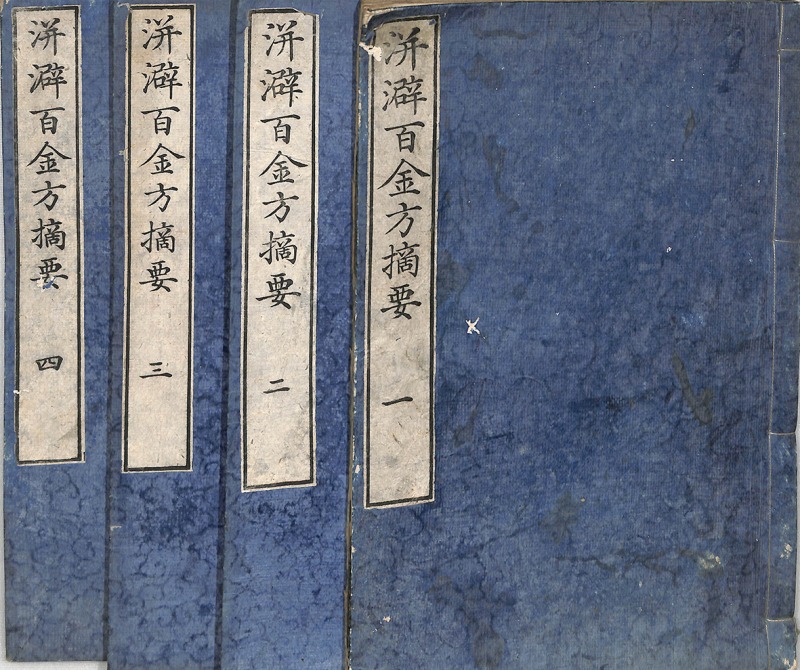 洴澼百金方摘要 一
洴澼百金方摘要 二
洴澼百金方摘要 三
洴澼百金方摘要 四